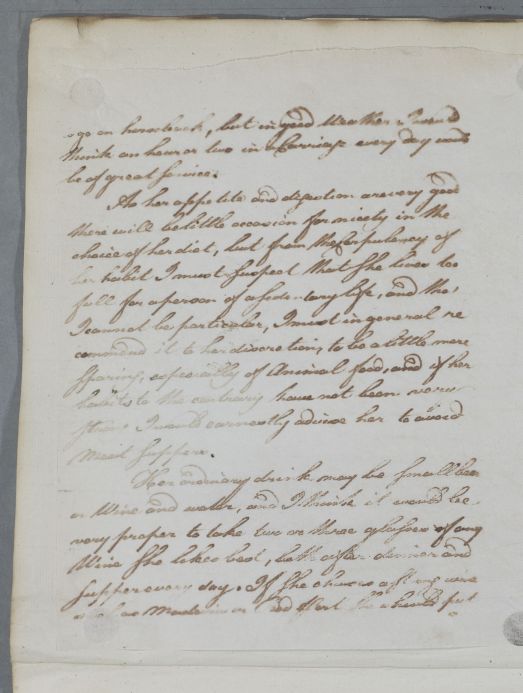 go on horseback, but in good Weather I would
think an hour or two in a Carriage every day would
be of great Service.
As her appetite and digestion are very good
there will be little occasion for nicety in the
choice of her diet, but from the Corpulency of
her habit I must suspect that She lives too
full for a person of a Sedentary life, and tho'
I cannot be particular, I must in general re
commend it to her discretion, to be a little more
Sparing, especially of Animal food, and if her
habits to the contrary have not been very
strong I would earnestly advise her to avoid
Meat Suppers.
Her ordinary drink may be Small beer
or Wine and water, and I think it would be
very proper to take two or three glasses of any
Wine She likes best, both after dinner and
Supper every day. If She chuses a strong wine
such as Madeira or and Port She should put